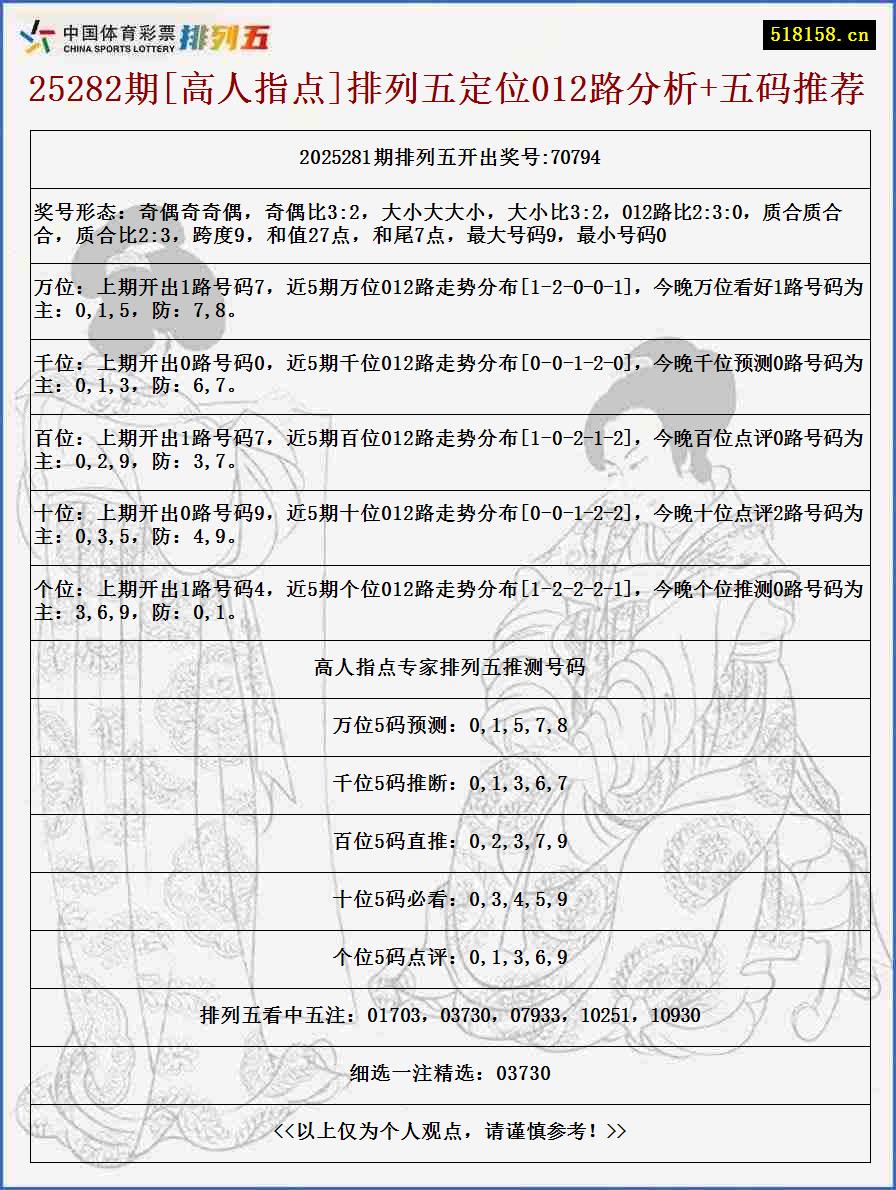 中国体育彩票 排列五
CHINA SPORTS LOTTERY
518158.cn
25282期[高人指点]排列五定位012路分析+五码推荐
2025281期排列五开出奖号:70794
奖号形态：奇偶奇奇偶，奇偶比3:2，大小大大小，大小比3:2，012路比2:3:0，质合质合
合，质合比2:3，跨度9，和值27点，和尾7点，最大号码9，最小号码0
万位：上期开出1路号码7，近5期万位012路走势分布[1-2-0-0-1]，今晚万位看好1路号码为
主：0,1,5，防：7,8。
千位：上期开出0路号码0，近5期千位012路走势分布[0-0-1-2-0]，今晚千位预测0路号码为
主：0,1,3，防：6,7。
百位：上期开出1路号码7，近5期百位012路走势分布[1-0-2-1-2]，今晚百位点评0路号码为
主：0,2,9，防：3,7。
十位：上期开出0路号码9，近5期十位012路走势分布[0-0-1-2-2]，今晚十位点评2路号码为
主：0,3,5，防：4,9。
个位：上期开出1路号码4，近5期个位012路走势分布[1-2-2-2-1]，今晚个位推测0路号码为
主：3,6,9，防：0,1。
高人指点专家排列五推测号码
万位5码预测：0,1,5,7,8
千位5码推断：0,1,3,6,7
百位5码直推：0,2,3,7,9
十位5码必看：0,3,4,5,9
个位5码点评：0,1,3,6,9
排列五看中五注：01703，03730，07933，10251，10930
细选一注精选：03730
<<以上仅为个人观点，请谨慎参考！>>